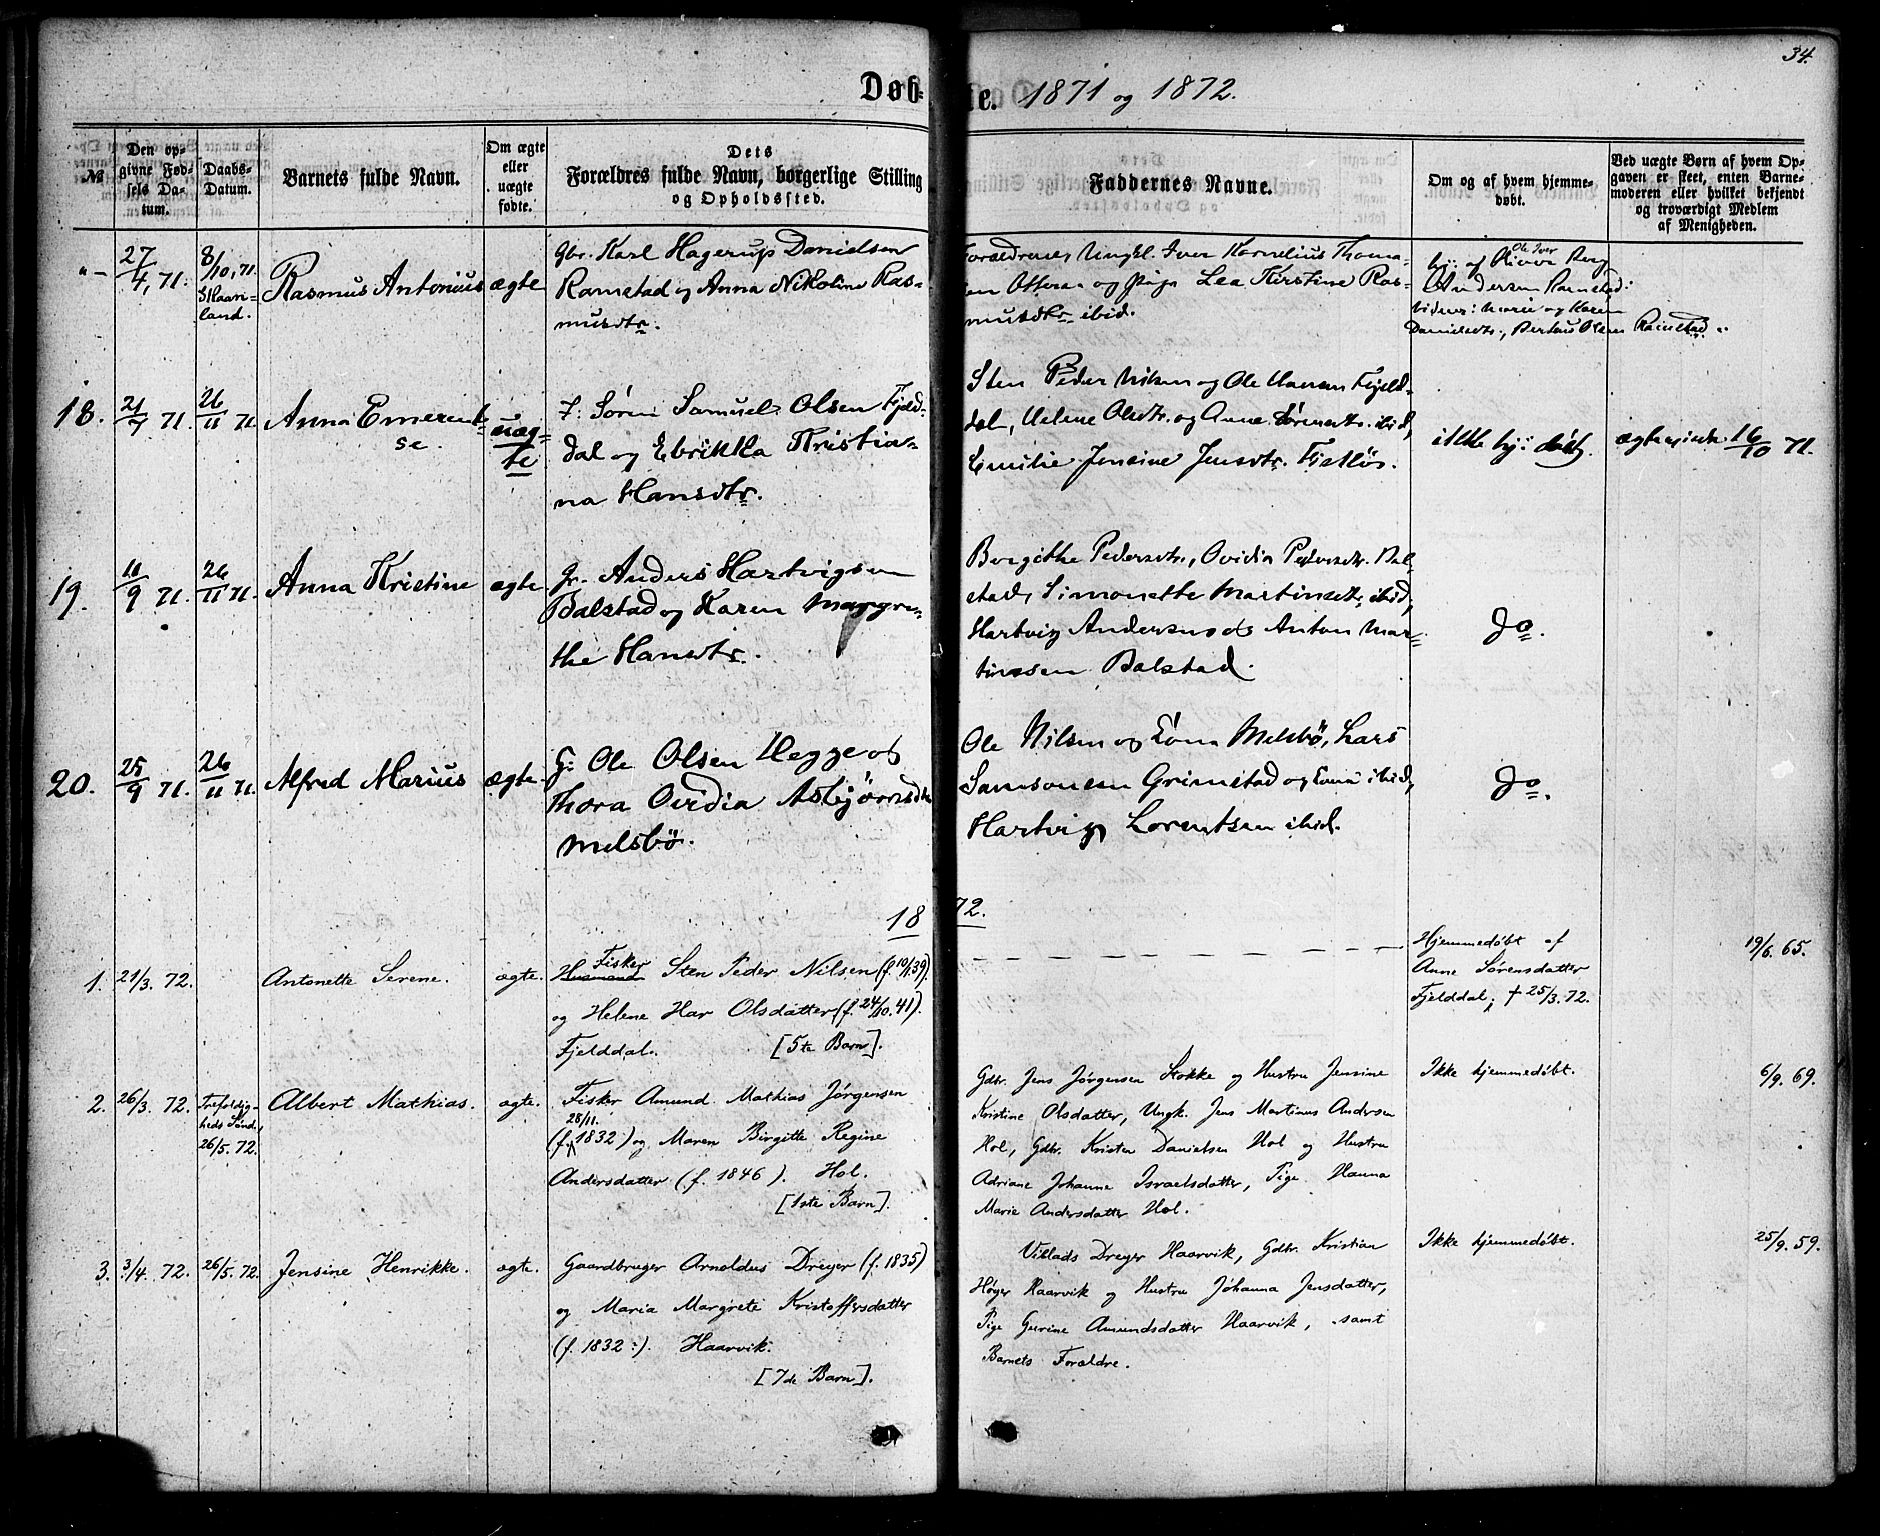 34.
Døb-
te. 1871 og 1872.
№
Den op-
givne Fød-
sels Da-
tum.
Daabs-
Datum.
Barnets fulde Navn.
Om ægte
eller
uægte
fødte.
Dets
Forældres fulde Navn, borgerlige Stilling
og Opholdssted.
Faddernes Navne.
Om og af hvem hjemme-
døbt.
Ved uægte Børn af hvem Op-
gaven er skeet, enten Barne-
moderen eller hvilket bekjendt
og troværdigt Medlem
af Menigheden.
"- 27/4, 71. 8/10, 71. Rasmus Antonius ægte
Gbr. Karl Hagerup Danielsen
Ramstad og Anna Nikoline Ras-
musdtr.
Forældrene, Ungkl. Iver Kornelius Thoma-
og Pige Lea Kirstine Ras-
musdtr. ibid.
hj: af
Ole Iver
Andersen Ramstad:
vidner: Marie og Karen
Danielsdtr., Olsen Ramstad
18. 21/7 71. 26/11 71. Anna Emerent-
se. uæg-
te
F: Søren Samuel Olsen Fjeld-
dal og Ebrikka Kristia-
na Hansdtr.
Sten Peder Nilsen og Ole Hansen Fjeld-
dal, Helene Olsdtr. og Anne Sørensdtr. ibid,
Emilie Jensine Jensdtr.
ikke hj: døbt.
16/10 71.
19. 11/9 71. 26/11 71. Anna Kristine ægte
Gr. Anders Hartvigsen
Balstad og Karen Margre-
the Hansdtr.
Borgithe Pedersdtr., Ovidia Pedersdtr. Bal-
stad, Simonette Martinsdtr. ibid,
Hartvig Andersen og Anton Mar-
tinssen Balstad.
do.
20. 25/9 71. 26/11 71. Alfred Marius ægte
G: Ole Olsen Hegge og
Thora Ovidia Asbjörnsdtr
Melsbö.
Ole Nilsen og Melsbö, Lars
Samsonsen Grimstad og ibid,
Hartvig Lorentsen ibid.
do.
1872.
1. 21/3. 72. Antonette Serene. ægte.
Fisker
Husmand Sten Peder Nilsen (f. 10/1 39).
og Helene Har Olsdatter (f. 24/10. 41).
Fjelddal. [5te Barn].
Hjemmedøbt af
Anne Sørensdatter
Fjelddal; † 25/3. 72.
19/6. 65.
2. 26/3. 72. Trefoldig-
heds Sønd.,
26/5. 72.
Albert Mathias. ægte.
Fisker Amund Mathias Jørgensen
28/11.
(f. 1832) og Maren Birgitte Regine
Andersdatter (f. 1846). Hol.
[1ste Barn].
Gdbr. Jens Jørgensen Stokke og Hustru Jensine
Kristine Olsdatter, Ungk. Jens Martinus Andersen
Hol, Gdbr. Kristen Danielsen Hol og Hustru
Adriane Johanne Israelsdatter, Pige Hanna
Marie Andersdatter Hol.
Ikke hjemmedøbt.
6/9. 69.
3. 3/4. 72. 26/5. 72. Jensine Henrikke. ægte.
Gaardbruger Arnoldus Dreyer (f. 1835)
og Maria Margrete Kristoffersdatter
(f. 1832 :). Haarvik.
[7de Barn].
Viklads Dreyer Haarvik, Gdbr. Kristian
Høyer Haarvik og Hustru Johanna Jensdatter,
Pige Gurine Amundsdatter Haarvik, samt
Barnets Forældre.
Ikke hjemmedøbt.
25/9. 59.